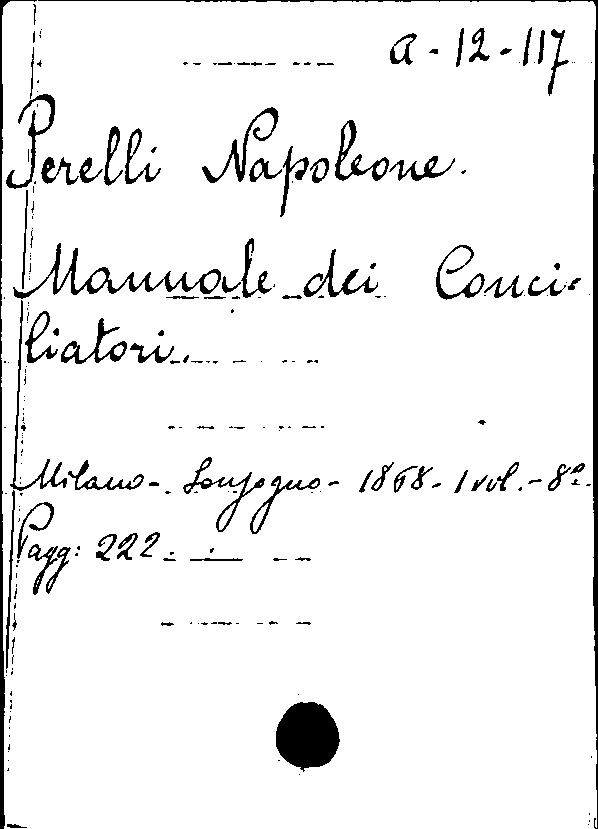 a-12-117
Perelli Napoleone.
Manuale dei Conci-
liatori.
Milano-. Sonzogno- 1868- 1 vol.- 8º.
Pagg: 222.